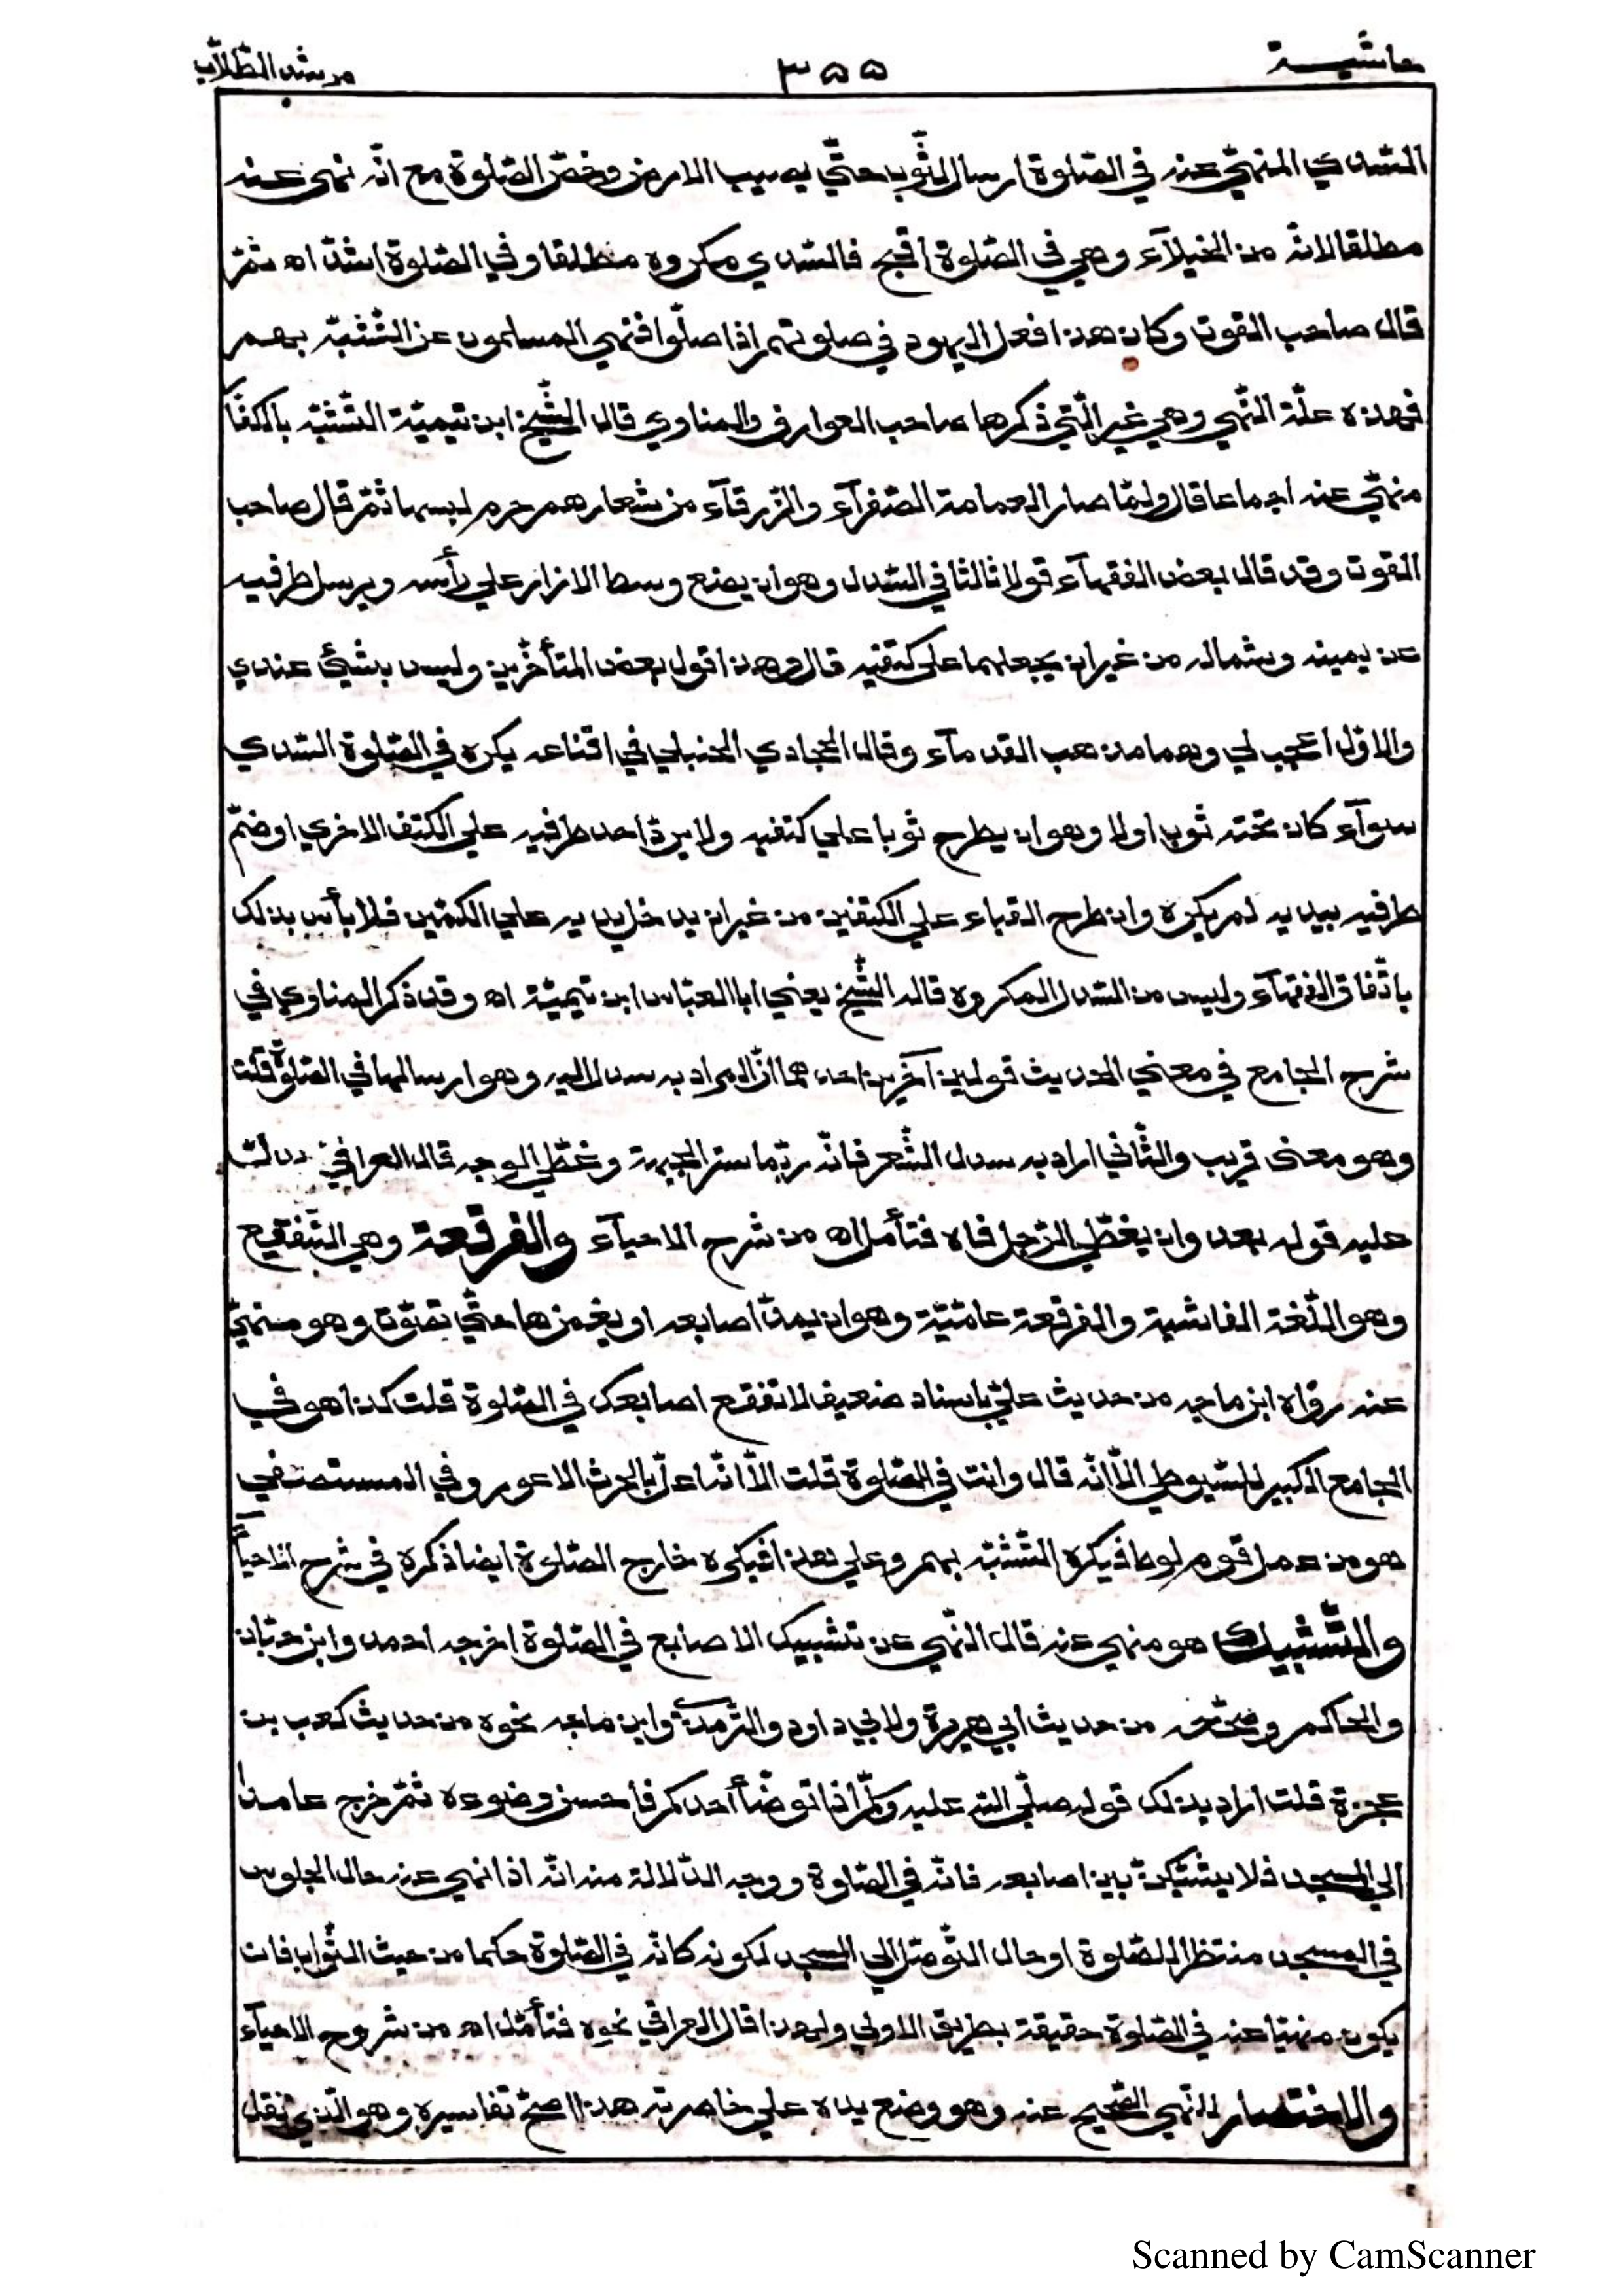 حاشية ٣٥٥ مرشد الطّلّاب
السّدل المنهيّ عنه في الصّلوة ارسال الثّوب حتّي يصيب الارض وخصّ الصّلوة مع انّه نهى عنه
مطلقا لانّه من الخيلآء وهي في الصّلوة أقبح فالسّدل مكروه مطلقا وفي الصّلوة اشدّ اه ثمّ
قال صاحب القوت وكان هذا فعل اليهود في صلوتهم اذا صلّوا فنهي المسلمون عن التّشبّه بهم
فهذه علّة النّهي وهي غير الّتي ذكرها صاحب العوارف والمناوي قال الشّيخ ابن تيميّة التّشبّه بالكفّا
منهيّ عنه اجماعا قال ولمّا صار العمامة الصّفرآء والزّرقآء من شعارهم حرم لبسها ثمّ قال صاحب
القوت وقد قال بعض الفقهآء قولا ثالثا في السّدل وهو ان يضع وسط الازار علي رأسه ويرسل طرفيه
عن يمينه وشماله من غير ان يجعلهما علي كتفيه قال وهذا قول بعض المتأخّرين وليس بشيئ عندي
والاوّل اعجب لي وهما مذهب القدمآء وقال الحجاوي الحنبلي في اقناعه يكره في الصّلوة السّدل
سوآء كان تحته ثوب اولا وهو ان يطرح ثوبا علي كتفيه ولا يردّ احد طرفيه علي الكتف الاخري او ضمّ
طرفيه بيديه لم يكره وان طرح القباء علي الكتفين من غير ان يدخل يديه علي الكمّين فلا بأس بذلك
باتّفاق الفقهآء وليس من السّدل المكروه قاله الشّيخ يعني ابا العبّاس ابن تيميّة اه وقد ذكر المناوي في
شرح الجامع في معني الحديث قولين آخرين احدهما انّ المراد به سدل اليد وهو ارسالها في الصّلوة قلت
وهو معنى قريب والثّاني اراد به سدل الشّعر فانّه ربّما ستر الجبهة وغطّي الوجه قال العراقي يدلّ
عليه قوله بعد وان يغطّي الرّجل فاه فتأمل اه من شرح الاحيآء والفرقعة وهي التّفقيع
وهو اللّغة الفاشية والفرقعة عامّيّة وهو ان يمدّ اصابعه او يغمزها حتّي تصوّت وهو منهيّ
عنه رواه ابن ماجه من حديث عليّ باسناد ضعيف لا تفقع اصابعك في الصّلوة قلت كذا هو في
الجامع الكبير للسّيوطي الّا انّه قال وانت في الصّلوة قلت الّا انّه اعلّ بالحرث الاعور وفي المستصفي
هو من عمل قوم لوط فيكره التّشبّه بهم وعلي هذا فيكره خارج الصّلوة ايضا ذكره في شرح الاحيآ
والتّشبيك هو منهي عنه قال النّهي عن تشبيك الاصابع في الصّلوة اخرجه احمد وابن حبّان
والحاكم وصحّحه من حديث ابي هريرة ولابي داود والتّرمذيّ وابن ماجه نحوه من حديث كعب بن
عجزة قلت اراد بذلك قوله صلّي اللّه عليه وسلّم اذا توضّأ احدكم فاحسن وضوءه ثمّ خرج عامدا
الي المسجد فلا يشبّكنّ بين اصابعه فانّه في الصّلوة ووجه الدّلالة منه انّه اذا نهي عنه حال الجلوس
في المسجد منتظرا للصّلوة او حال التّوصّل الي المسجد لكونه كانّه في الصّلوة حكما من حيث الثّواب فان
يكون منهيّا عنه في الصّلوة حقيقة بطريق الاولي ولهذا قال العراقي نحوه فتأمّل اه من شروح الاحيآء
والاختصار للنّهي الصّحيح عنه وهو وضع يده علي خاصرته هذا اصحّ تفاسيره وهو الّذي نقل
Scanned by CamScanner